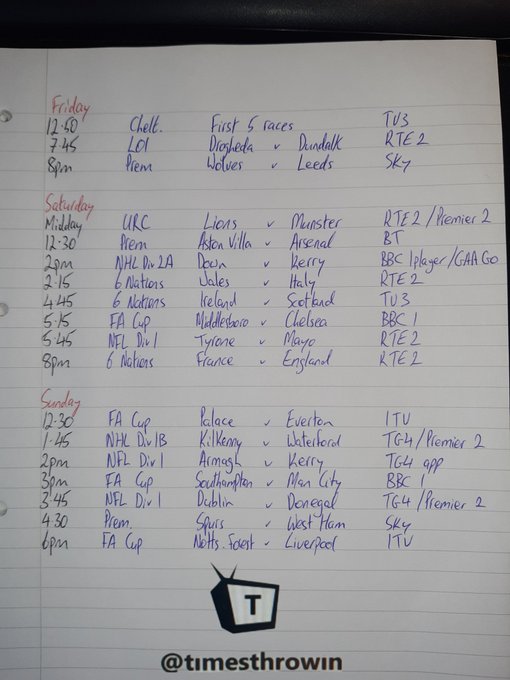 Friday
12.50 Chelt. First 5 races TV3
7.45 LOI Drogheda v Dundalk RTE 2
8pm Prem Wolves v Leeds Sky
Saturday
Midday URC Lions v Munster RTE 2 / Premier 2
12.30 Prem Aston Villa v Arsenal BT
2pm NHL Div 2A Down v Kerry BBC Iplayer/GAA Go
2.15 6 Nations Wales v Italy RTE 2
4.45 6 Nations Ireland v Scotland TV3
5.15 FA Cup Middlesboro v Chelsea BBC 1
5.45 NFL Div 1 Tyrone v Mayo RTE 2
8pm 6 Nations France v England RTE 2
Sunday
12.30 FA Cup Palace v Everton ITV
1.45 NHL Div 1B Kilkenny v Waterford TG4/Premier 2
2pm NFL Div 1 Armagh v Kerry TG4 app
3pm FA Cup Southampton v Man City BBC 1
3.45 NFL Div 1 Dublin v Donegal TG4/Premier 2
4.30 Prem. Spurs v West Ham Sky
6pm FA Cup Notts. Forest v Liverpool ITV
T
@timesthrowin